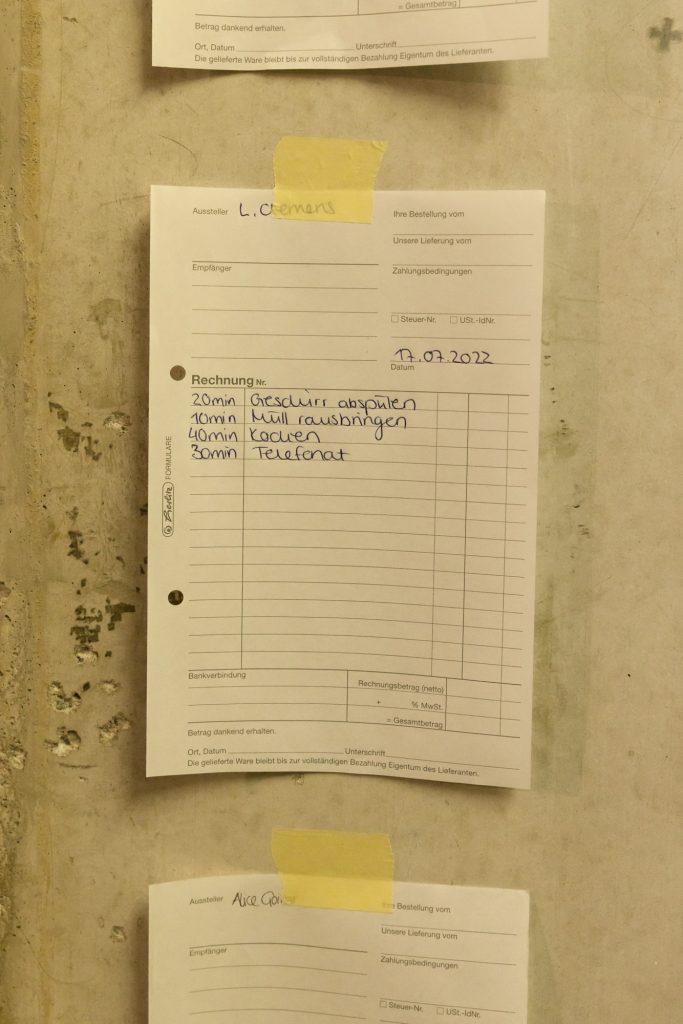 = Gesamtbetrag
Betrag dankend erhalten.
Ort, Datum Unterschrift
Die gelieferte Ware bleibt bis zur vollständigen Bezahlung Eigentum des Lieferanten.
Aussteller L. Clemens
Ihre Bestellung vom
Unsere Lieferung vom
Empfänger
Zahlungsbedingungen
Steuer-Nr. USt.-IdNr.
17.07.2022
Datum
Rechnung Nr.
20min Geschirr abspülen
10min Müll rausbringen
40min Kochen
30min Telefonat
Berlin FORMULARE
Bankverbindung
Rechnungsbetrag (netto)
+ % MwSt.
= Gesamtbetrag
Betrag dankend erhalten.
Ort, Datum Unterschrift
Die gelieferte Ware bleibt bis zur vollständigen Bezahlung Eigentum des Lieferanten.
Aussteller Alice
Ihre Bestellung vom
Unsere Lieferung vom
Empfänger
Zahlungsbedingungen
Steuer-Nr. USt.-IdNr.